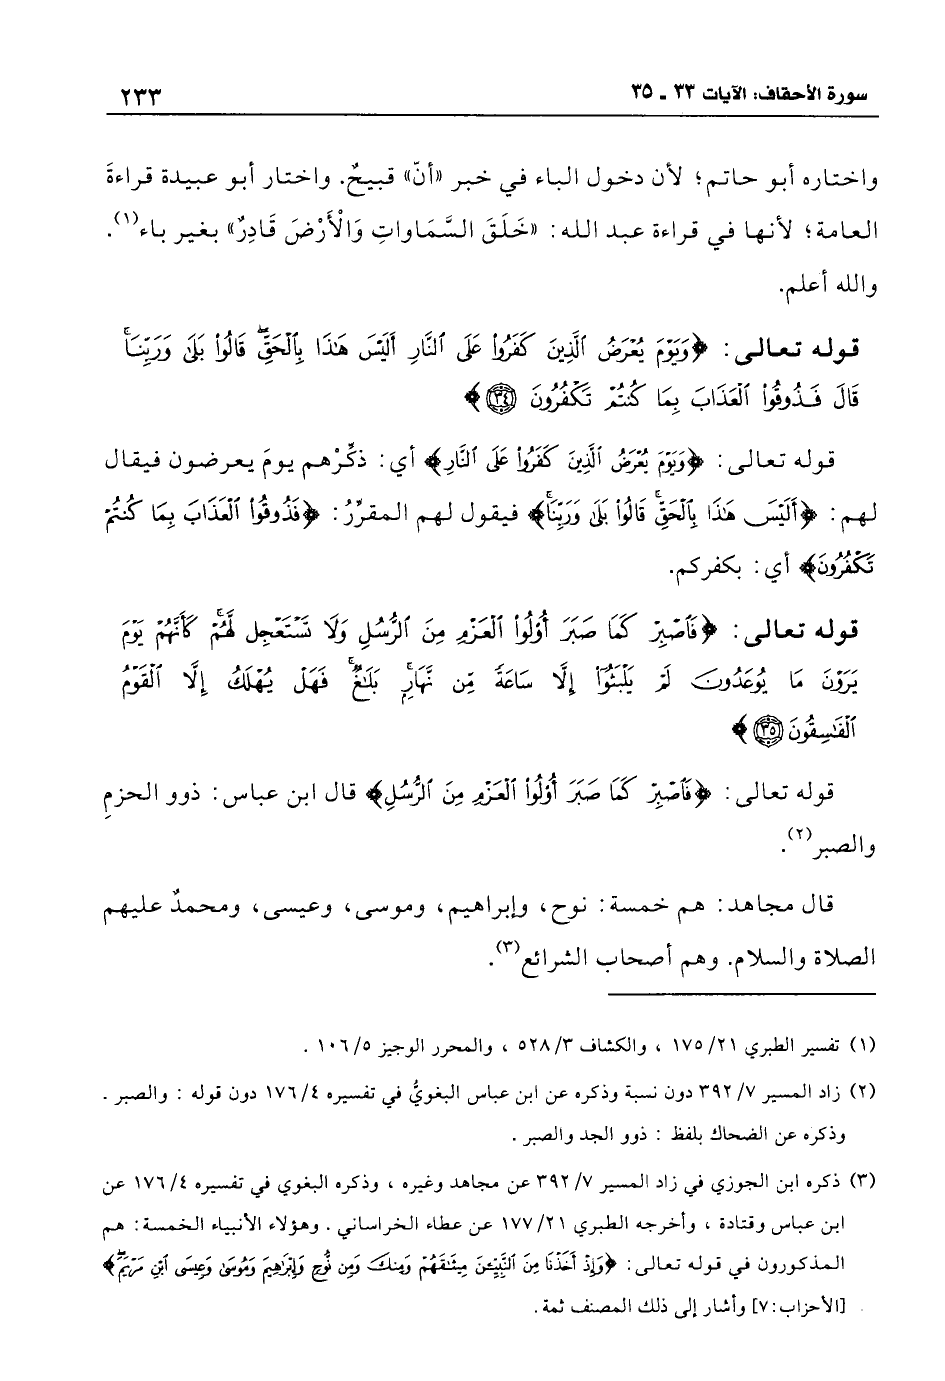 سورة الأحقاف: الآيات ٣٣ ـ ٣٥
٢٣٣
واختاره أبو حاتم؛ لأن دخول الباء في خبر «أنّ» قبيحٌ. واختار أبو عبيدة قراءةَ
العامة؛ لأنها في قراءة عبد الله: «خَلَقَ السَّمَاواتِ وَالْأَرْضَ قَادِرٌ» بغير باء(١).
والله أعلم.
قوله تعالى: ﴿وَيَوْمَ يُعْرَضُ ٱلَّذِينَ كَفَرُوا۟ عَلَى ٱلنَّارِ أَلَيْسَ هَٰذَا بِٱلْحَقِّۖ قَالُوا۟ بَلَىٰ وَرَبِّنَاۚ
قَالَ فَذُوقُوا۟ ٱلْعَذَابَ بِمَا كُنتُمْ تَكْفُرُونَ ٣٤﴾
قوله تعالى: ﴿وَيَوْمَ يُعْرَضُ ٱلَّذِينَ كَفَرُوا۟ عَلَى ٱلنَّارِ﴾ أي: ذكِّرْهم يومَ يعرضون فيقال
لهم: ﴿أَلَيْسَ هَٰذَا بِٱلْحَقِّۖ قَالُوا۟ بَلَىٰ وَرَبِّنَاۚ﴾ فيقول لهم المقرِّرُ: ﴿فَذُوقُوا۟ ٱلْعَذَابَ بِمَا كُنتُمْ
تَكْفُرُونَ﴾ أي: بكفركم.
قوله تعالى: ﴿فَٱصْبِرْ كَمَا صَبَرَ أُو۟لُوا۟ ٱلْعَزْمِ مِنَ ٱلرُّسُلِ وَلَا تَسْتَعْجِل لَّهُمْۚ كَأَنَّهُمْ يَوْمَ
يَرَوْنَ مَا يُوعَدُونَ لَمْ يَلْبَثُوٓا۟ إِلَّا سَاعَةً مِّن نَّهَارٍۚ بَلَٰغٌۚ فَهَلْ يُهْلَكُ إِلَّا ٱلْقَوْمُ
ٱلْفَٰسِقُونَ ٣٥﴾
قوله تعالى: ﴿فَٱصْبِرْ كَمَا صَبَرَ أُو۟لُوا۟ ٱلْعَزْمِ مِنَ ٱلرُّسُلِ﴾ قال ابن عباس: ذوو الحزمِ
والصبر(٢).
قال مجاهد: هم خمسة: نوح، وإبراهيم، وموسى، وعيسى، ومحمدٌ عليهم
الصلاة والسلام. وهم أصحاب الشرائع(٣).
(١) تفسير الطبري ٢١/ ١٧٥ ، والكشاف ٣/ ٥٢٨ ، والمحرر الوجيز ٥/ ١٠٦ .
(٢) زاد المسير ٧/ ٣٩٢ دون نسبة وذكره عن ابن عباس البغويُّ في تفسيره ٤/ ١٧٦ دون قوله : والصبر .
وذكره عن الضحاك بلفظ : ذوو الجد والصبر .
(٣) ذكره ابن الجوزي في زاد المسير ٧/ ٣٩٢ عن مجاهد وغيره ، وذكره البغوي في تفسيره ٤/ ١٧٦ عن
ابن عباس وقتادة ، وأخرجه الطبري ٢١/ ١٧٧ عن عطاء الخراساني . وهؤلاء الأنبياء الخمسة: هم
المذكورون في قوله تعالى: ﴿وَإِذْ أَخَذْنَا مِنَ ٱلنَّبِيِّۦنَ مِيثَٰقَهُمْ وَمِنكَ وَمِن نُّوحٍ وَإِبْرَٰهِيمَ وَمُوسَىٰ وَعِيسَى ٱبْنِ مَرْيَمَۖ﴾
[الأحزاب:٧] وأشار إلى ذلك المصنف ثمة.